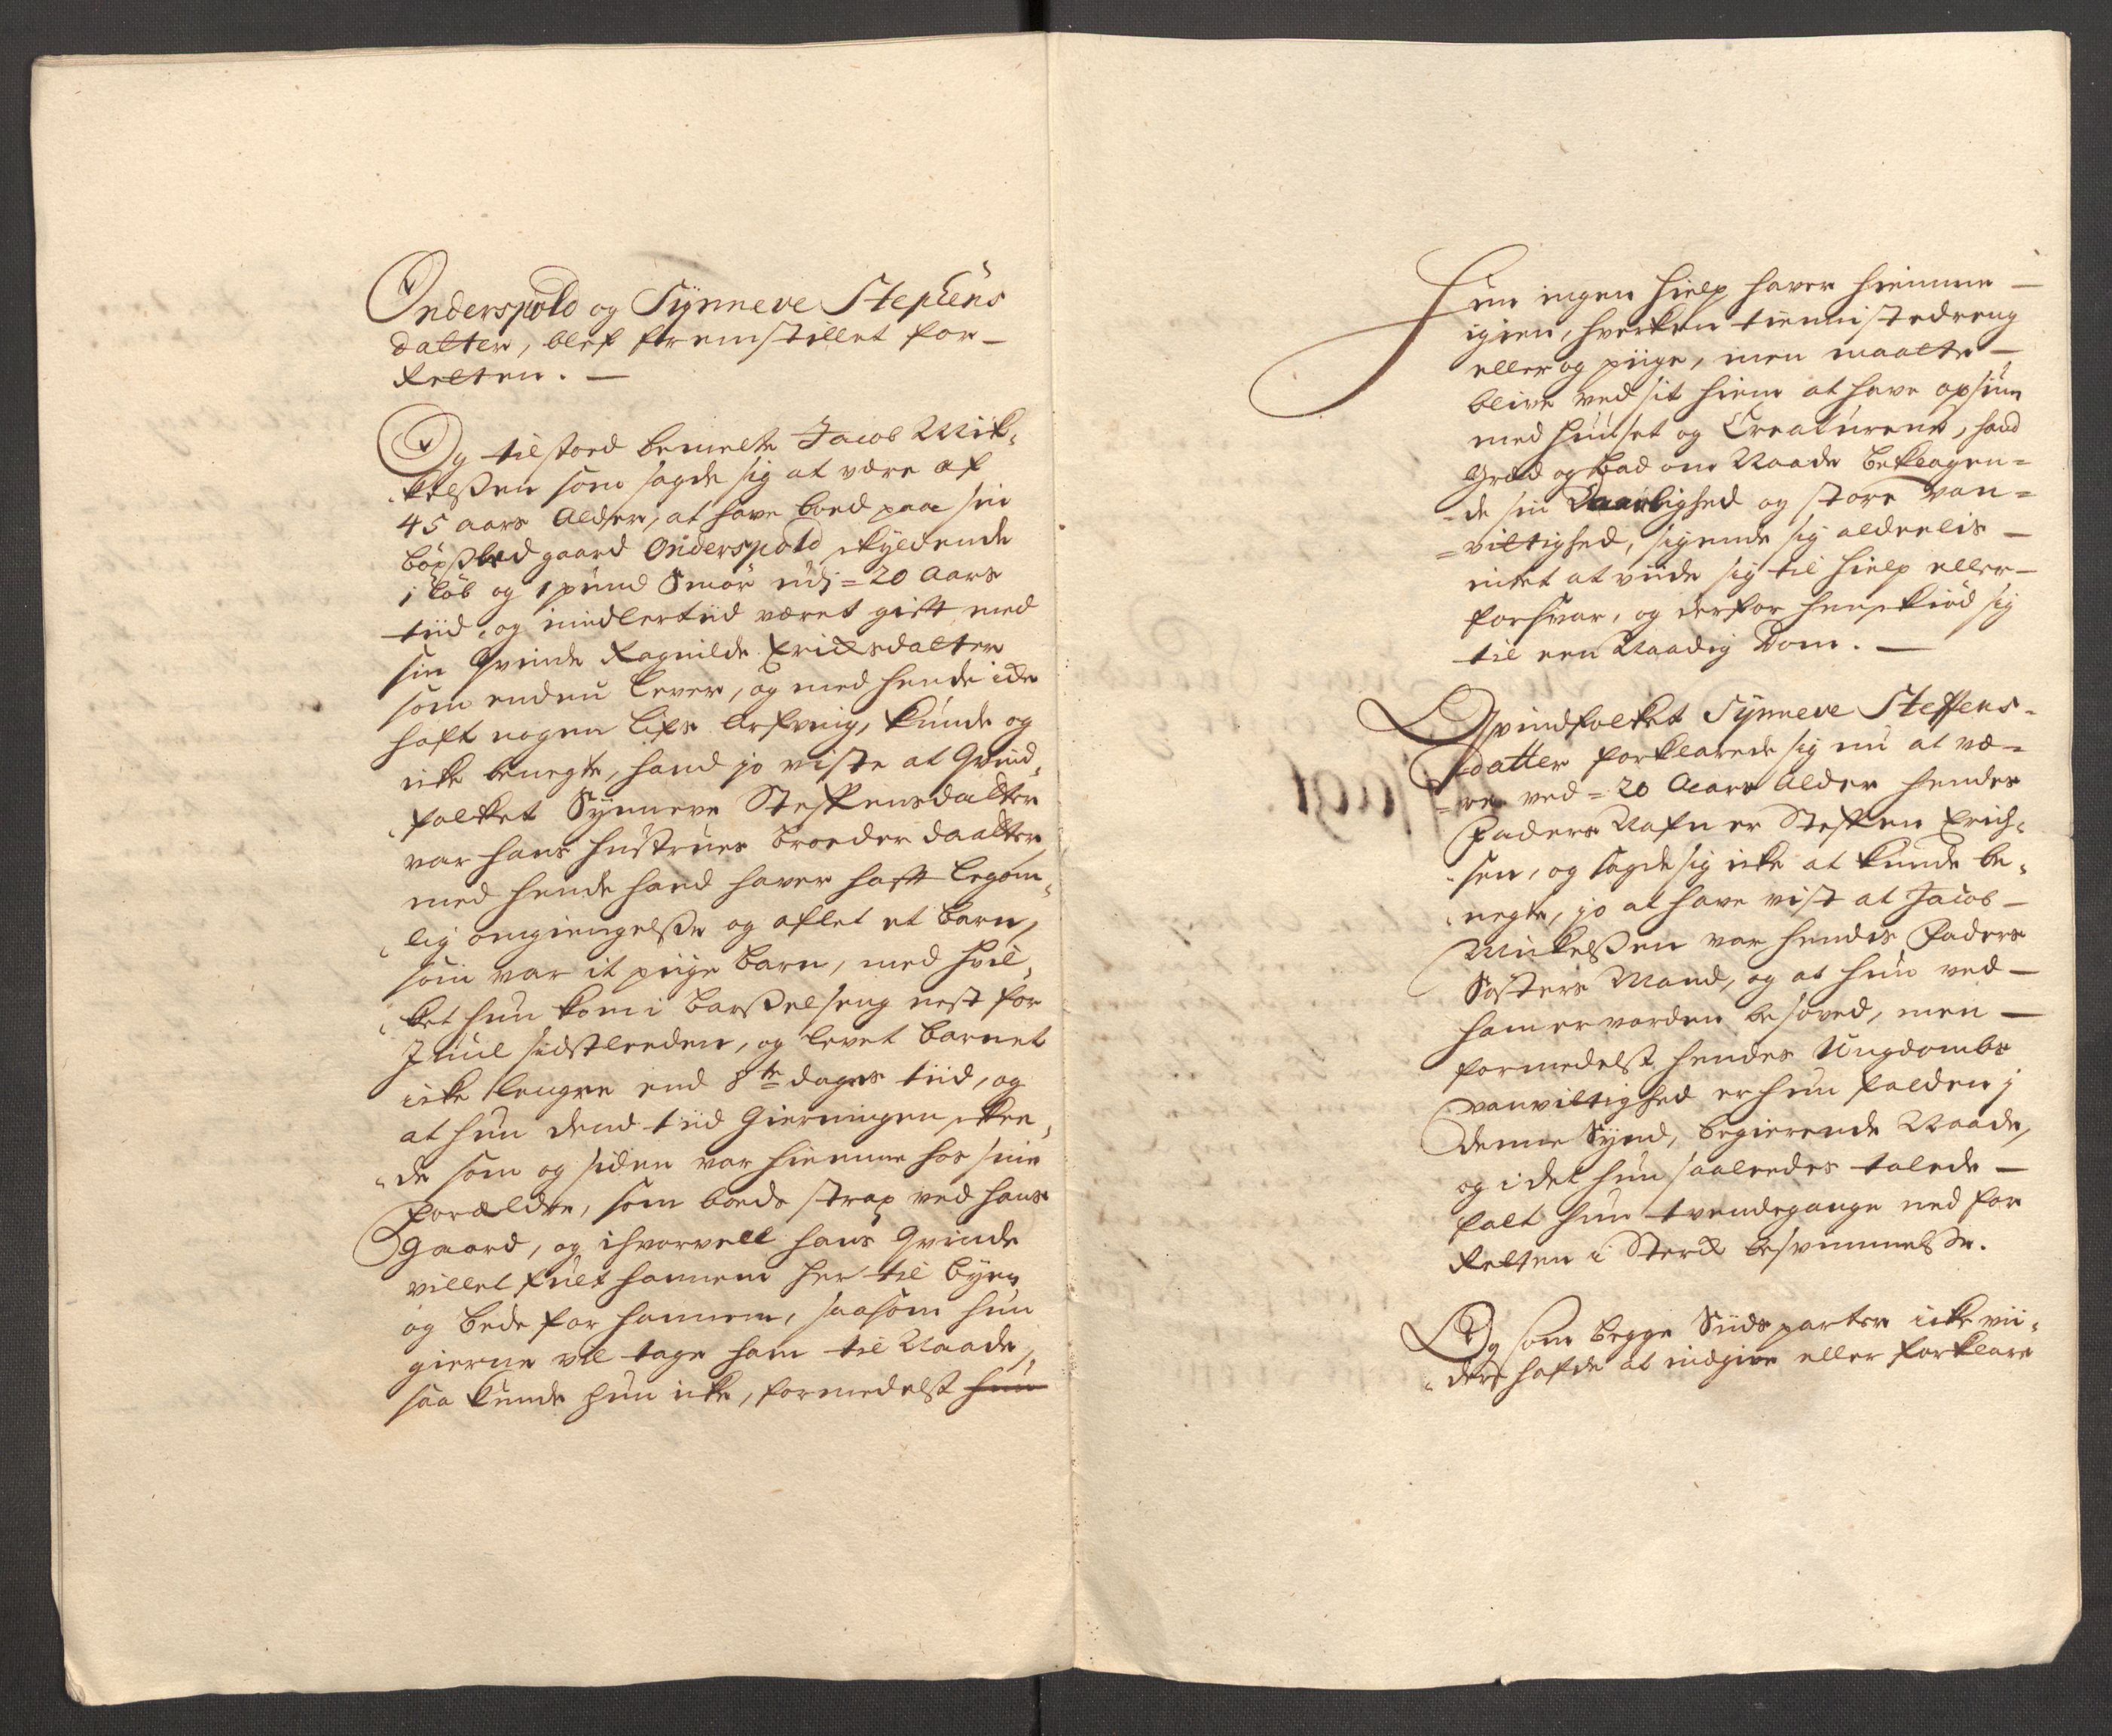 Onderspold og Synneve Stephens
datter, blef fremstillet for
Retten.
Og tilstoed bemelte Jacob Mik-
kelssen som sagde sig at være af
45 aars Alder, at have boed paa sin
böxsled gaard Onderspold skyldende
1 löb og 1 pund Smör udj = 20 Aars
tiid, og imidlertiid været gift med
sin Qvinde Ragnilde Erichsdatter
som endnu lever, og med hende icke
haft nogen lifs Arfving, kunde og
icke benegte, hand jo viste at Qvind-
folket Synneve Steffensdatter
var hans hustrues broeder daatter,
med hende hand haver haft legom-
lig omgiengelsse og aflet et barn,
som var it piige barn, med hvil-
ket hun kom i barsselseng nest for
Juul sidstleeden, og levet barnet
icke lengre end 8te dages tiid, og
at hun dend tiid Gierningen skee-
de som og siden var hiemme hos sine
Forældre, som boede strax ved hans
Gaard, og ihvorvell hans Qvinde
villet fult hannem her til byen
og bede for hannem, saasom hun
gierne vil tage ham til Naade,
saa kunde hun icke, formedelst hun
Hun ingen hielp haver hiemme
igien, hverken tiennistedreng
eller og piige, men maatte
blive ved sit hiem at have opsiun
med huuset og Creaturene, hand
Græd og bad om Naade beklagen-
de sin Daarlighed og store van-
vittighed, sigende sig alderlis
intet at viide sig til hielp eller
forsvar, og derfor henskiöd sig
til een Naadig Dom.
Qvindfolket Synneve Steffens-
datter forklarede sig nu at væ-
re ved = 20 Aars Alder hendes
Faders Nafn er Steffen Erich-
sen, og sagde sig icke at kunde be-
negte, jo at have vist at Jacob
Mickelssen var hendes Faders
Søsters Mand, og at hun ved
ham er vorden besoved, men
formedelst hendes Ungdombs
vanvittighed er hun falden j
denne Synd, begierende Naade,
og i det hun saaledes talede
falt hun tvendegange ned for
Retten i Sterck besvimmelsse.
Og som begge Siids parter icke vii-
dere hafde at indgive eller forklare